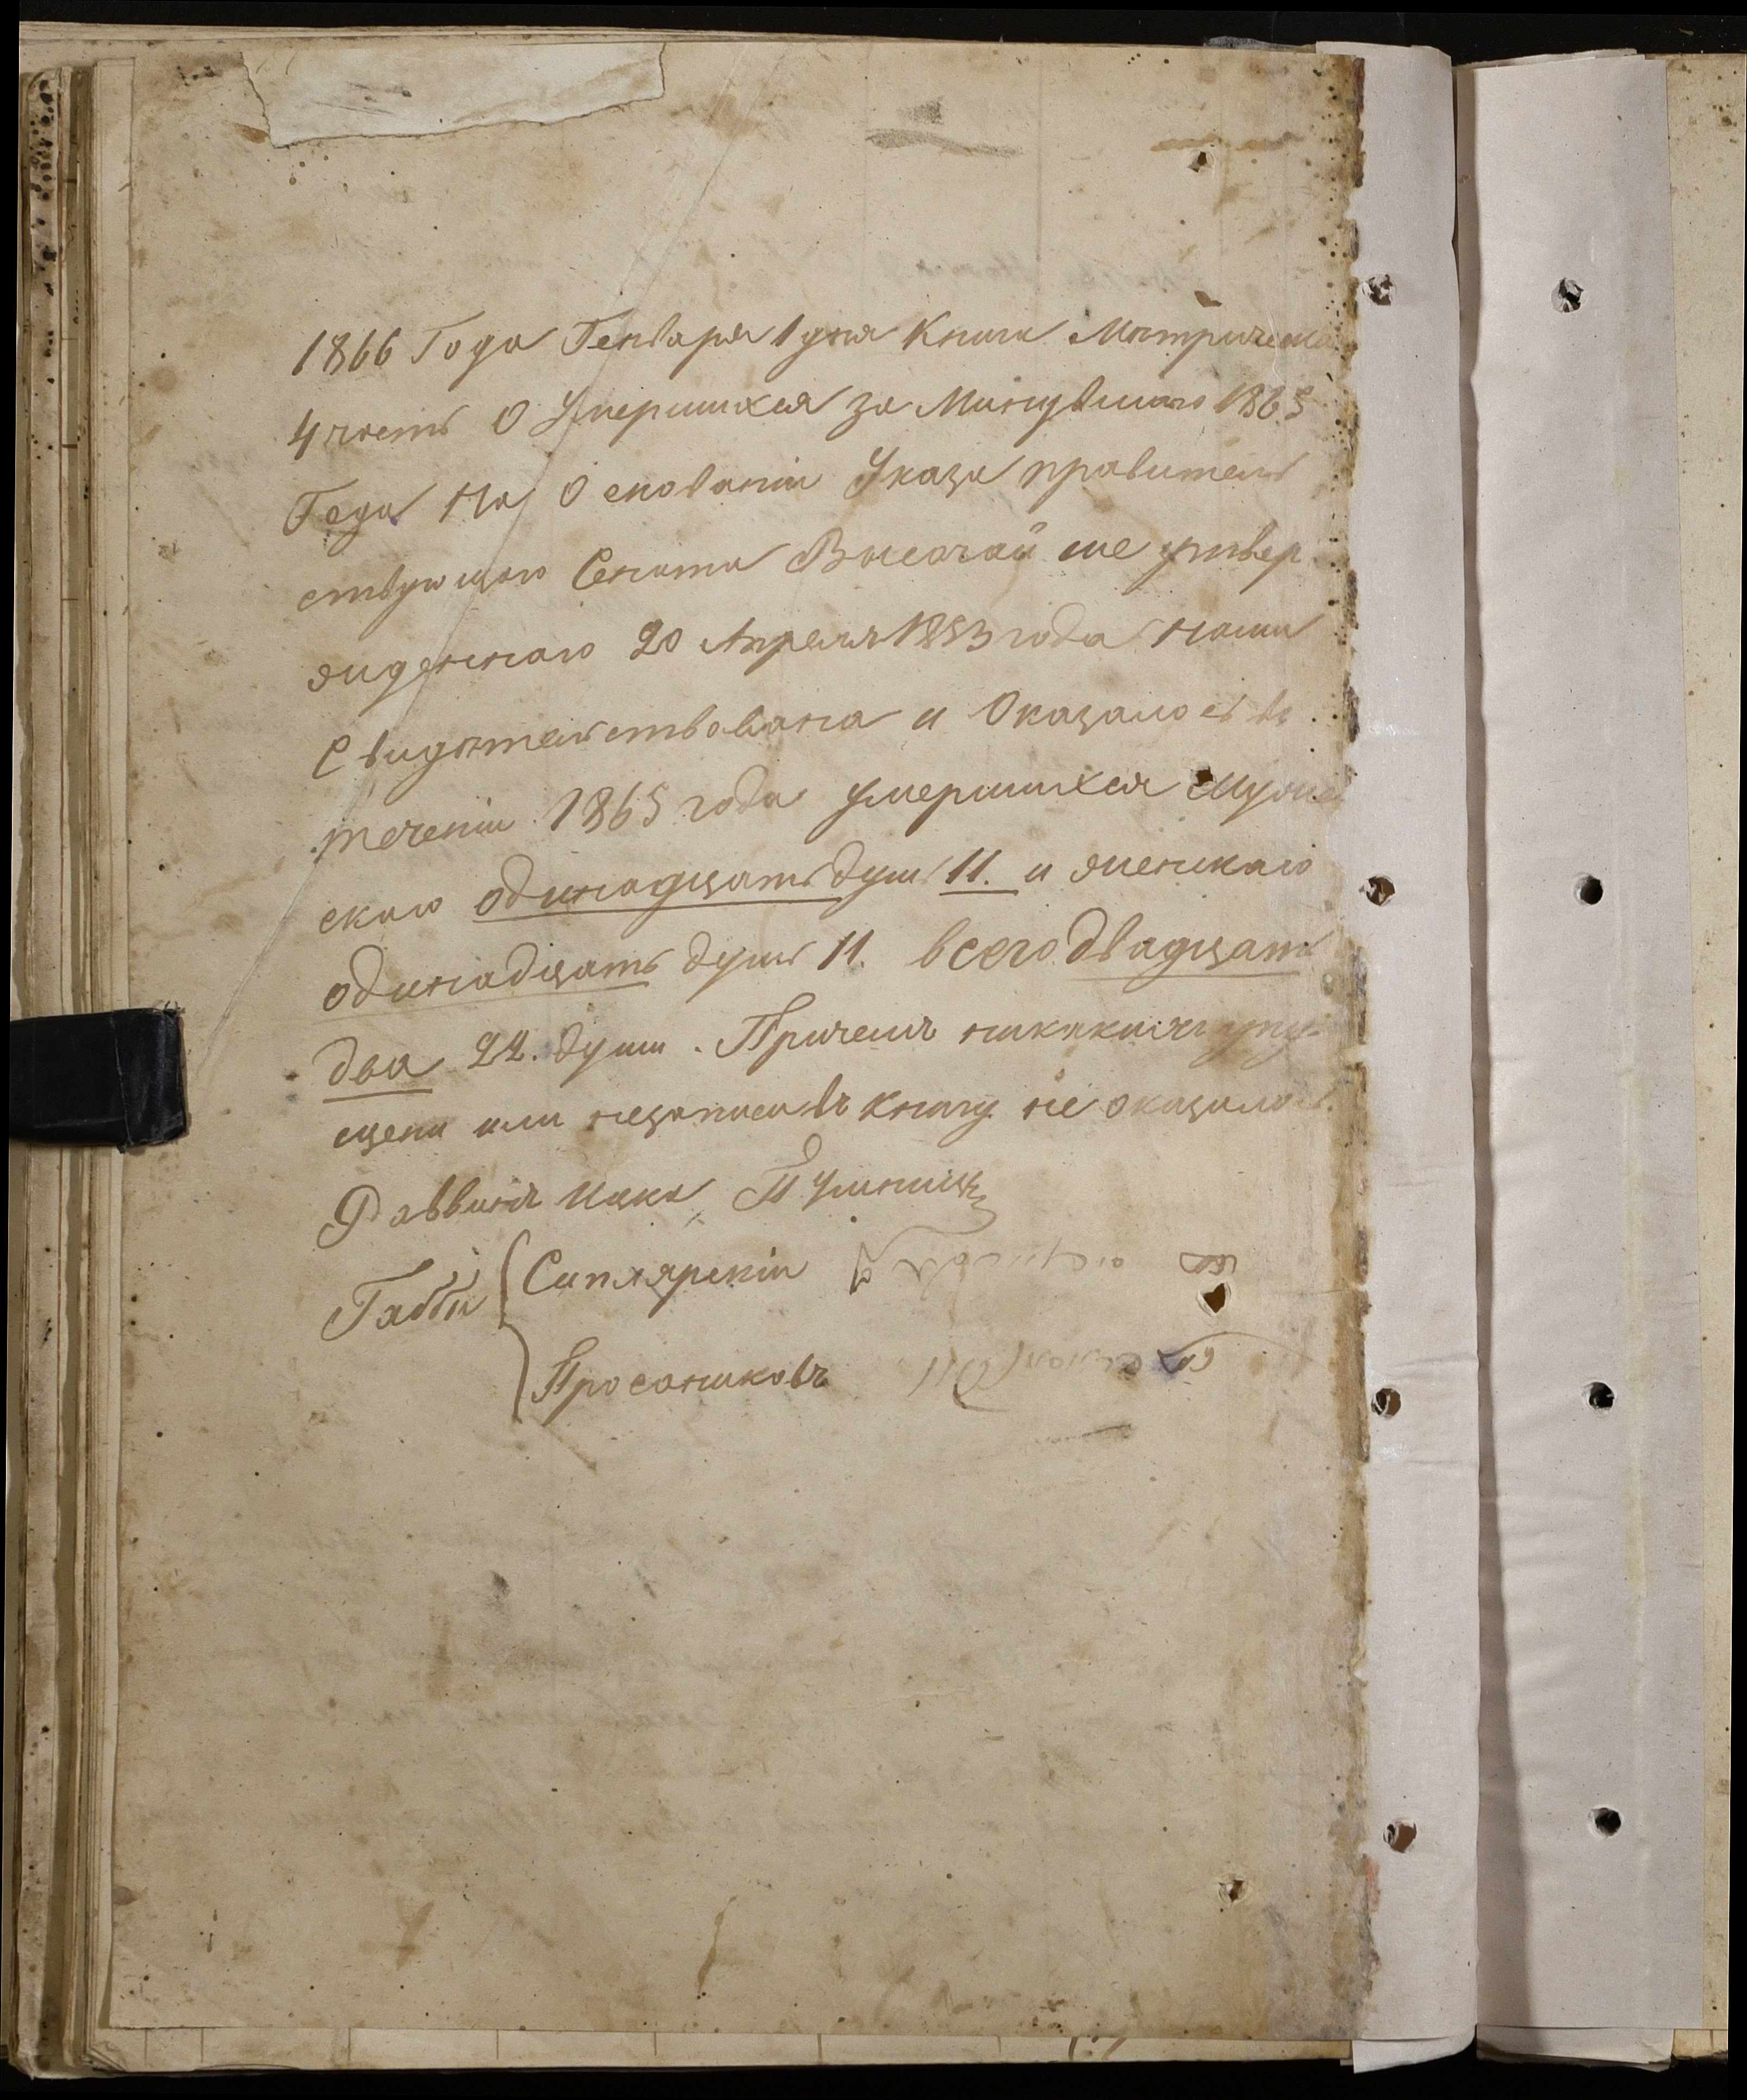 1866 Года Генваря 1 дня Книга Метрическа
4 часть О Умершихся за Минувшаго 1865
Года На Основаніи Указа правитель
ствующаго Сената Высочайше утвер
жденнаго 20 Апреля 1853 года нами
Свидѣтельствована и Оказалось въ
теченіи 1865 года умершихся Мужес
скаго одинадцать душъ 11. и женскаго
одинадцать душъ 11. всего двадцать
два 22. души. Причемъ никакихъ упу
щени или незаписи въ книгу не оказалось.
Раввинъ Ицка
Габби Сипляренін
Просяниковъ